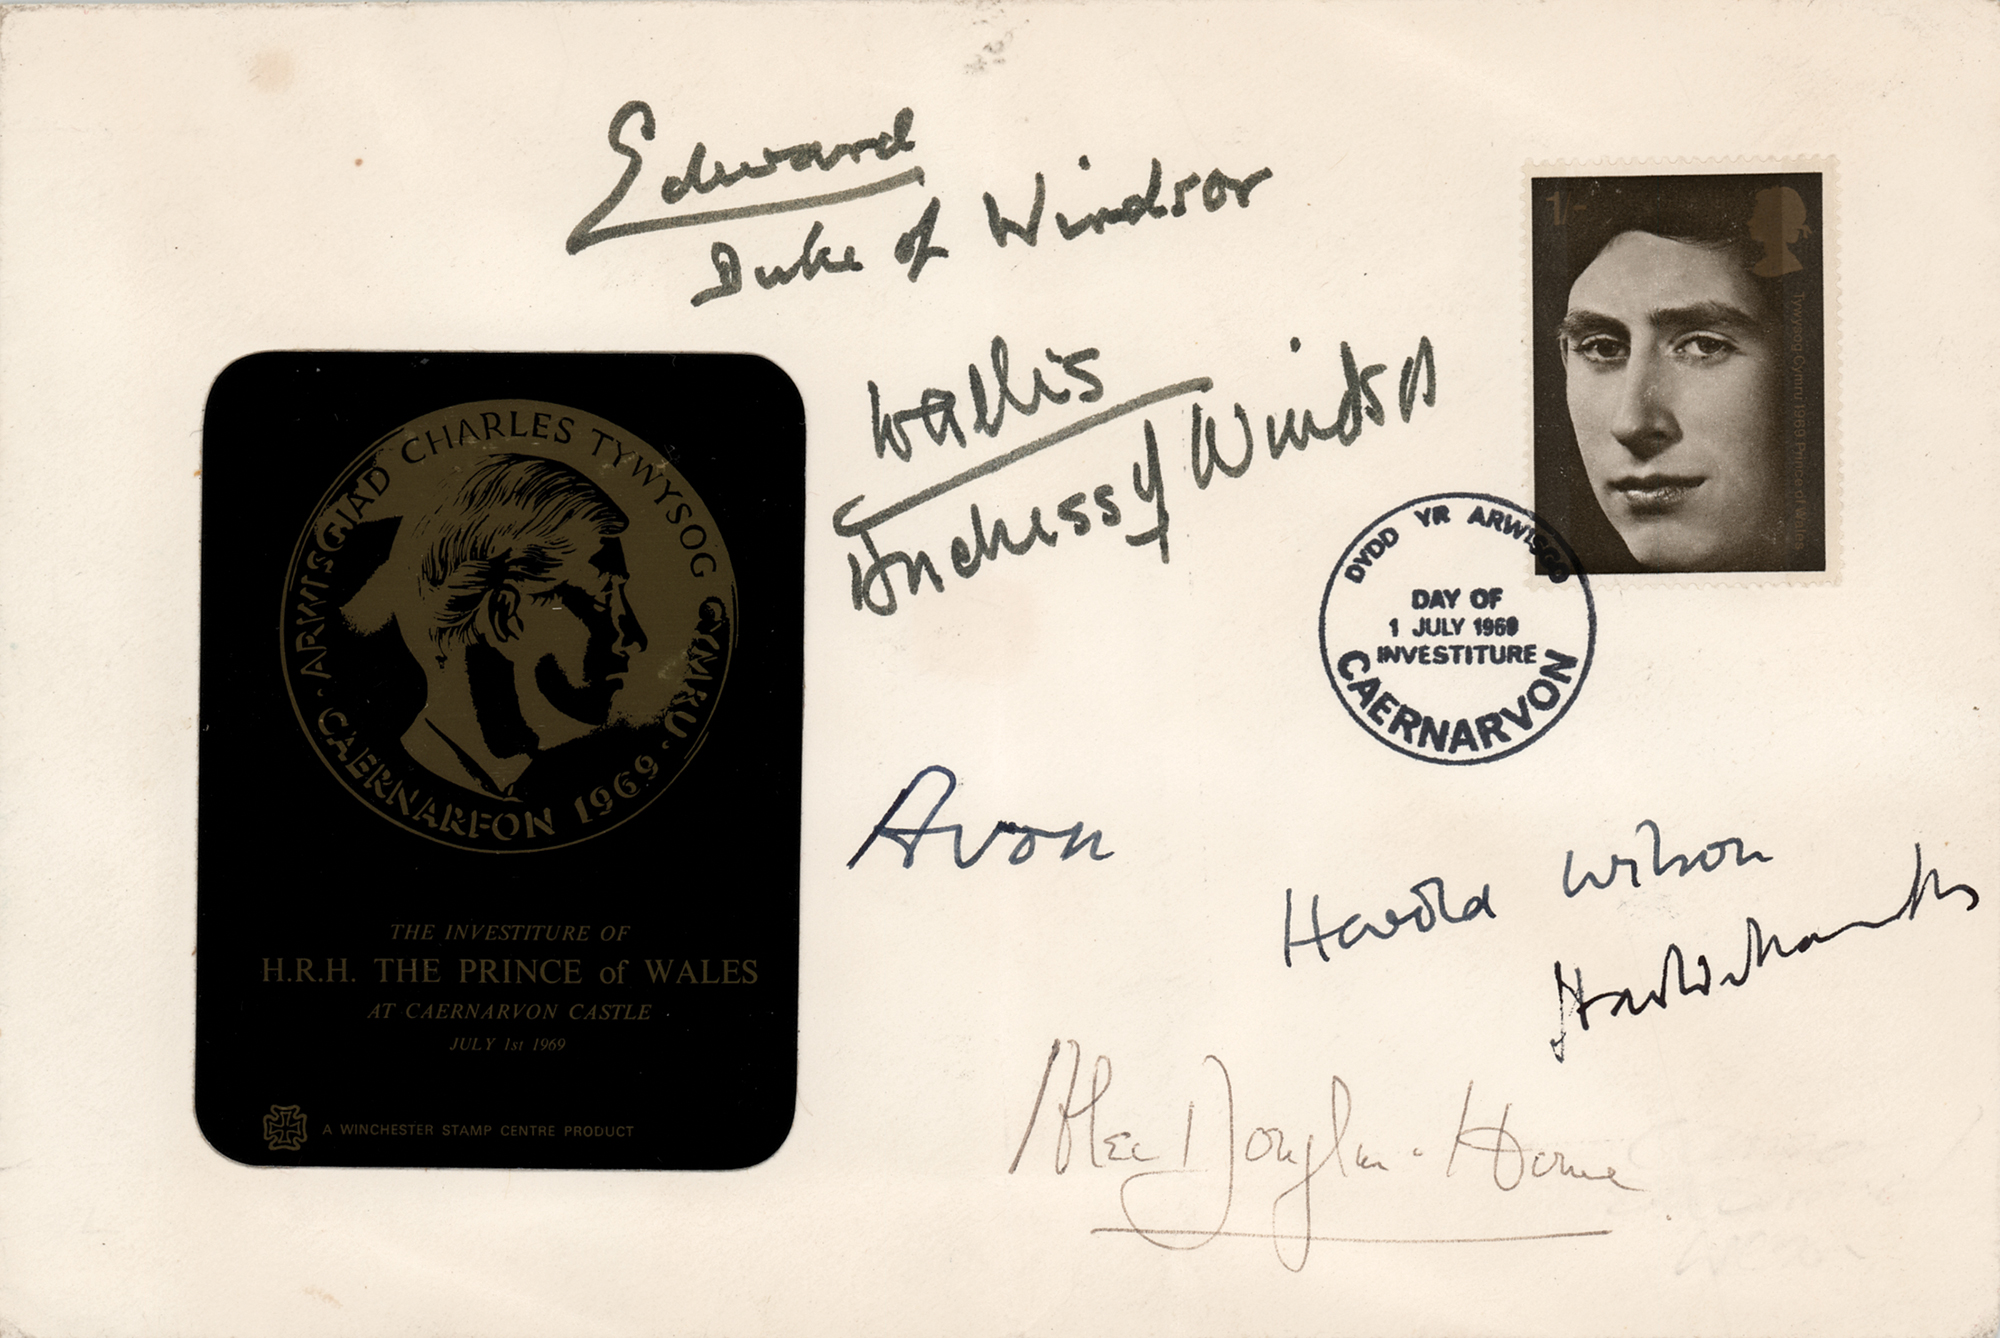 Edward
Duke of Windsor
Wallis
Duchess of Windsor
1/-
Tywysog Cymru 1969 Prince of Wales
DYDD YR ARWISGO
DAY OF
1 JULY 1969
INVESTITURE
CAERNARVON
· ARWISGIAD CHARLES TYWYSOG CYMRU ·
CAERNARFON 1969
THE INVESTITURE OF
H.R.H. THE PRINCE of WALES
AT CAERNARVON CASTLE
JULY 1st 1969
A WINCHESTER STAMP CENTRE PRODUCT
Avon
Harold Wilson
Harold Macmillan
Alec Douglas-Home